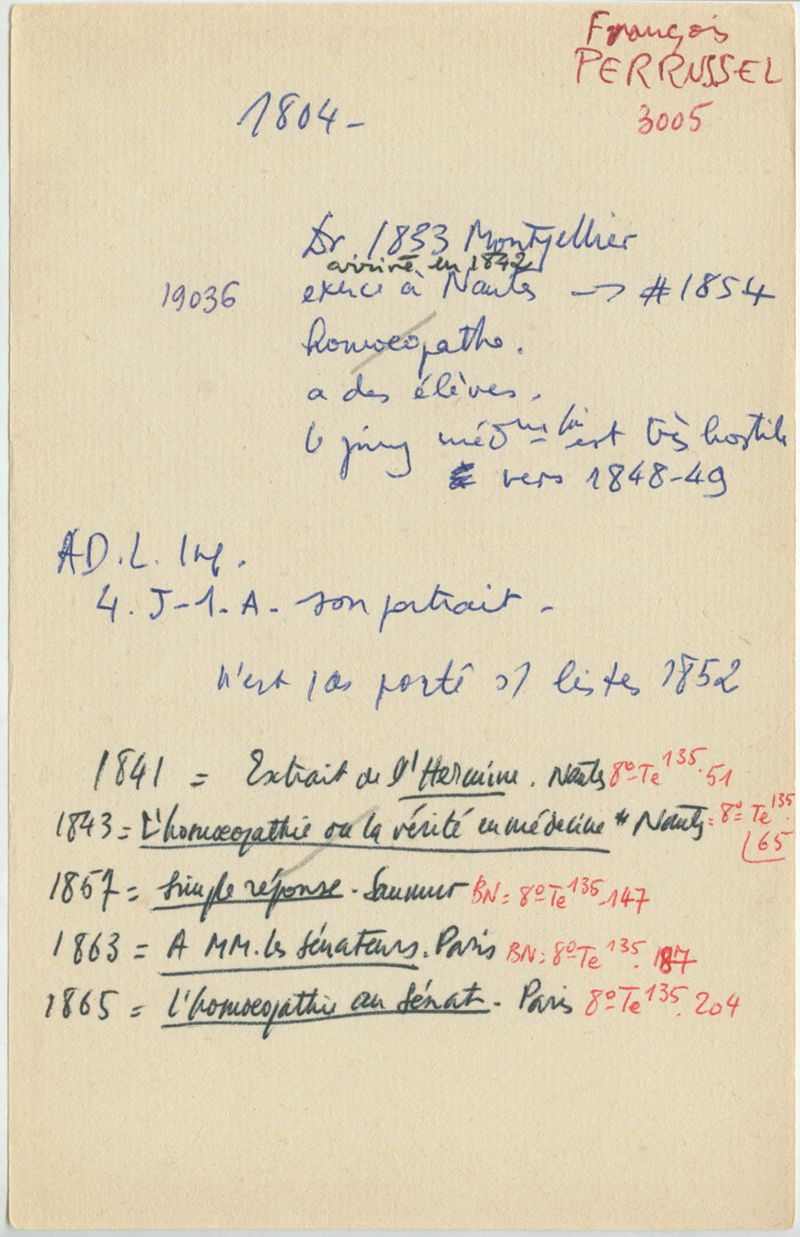 François
PERRUSSEL
3005
1804 -
Dr 1833 Montpellier
arrivé en 1842
19036 exerce à Nantes → #1854
homœopathe.
a des élèves.
le jury méd lui est très hostile
vers 1848-49
AD. L. Inf.
4. J-1. A- son portrait -
n'est pas porté s/ listes 1852
1841 = Extrait de l'Hermine. Nantes 8º Te 135. 51
1843 = L'homœopathie ou la vérité en médecine * Nantes = 8º Te 135.
65
1857 = Simple réponse - Saumur BN = 8º Te 135 -147
1863 = A MM. les Sénateurs. Paris BN: 8º Te 135. 187
1865 = L'homœopathie au Sénat - Paris 8º Te 135. 204